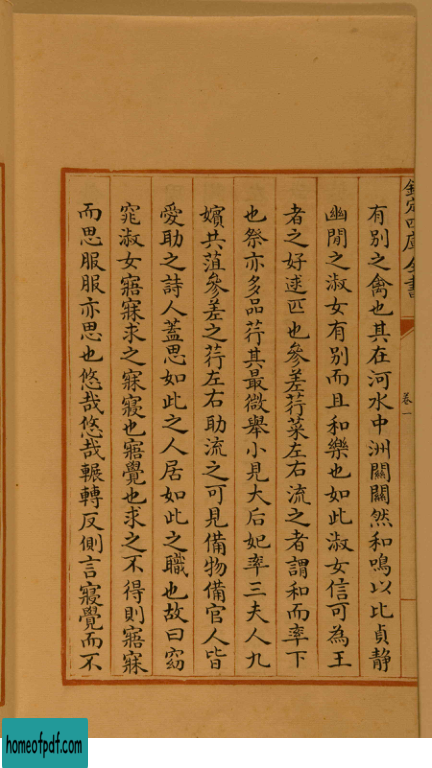 欽定四庫全書
卷一
有別之禽也其在河水中洲關關然和鳴以比貞靜
幽閒之淑女有別而且和樂也如此淑女信可為王
者之好逑匹也參差荇菜左右流之者謂和而率下
也祭亦多品荇其最微舉小見大后妃率三夫人九
嬪共菹參差之荇左右助流之可見備物備官人皆
愛助之詩人蓋思如此之人居如此之職也故曰窈
窕淑女寤寐求之寐寢也寤覺也求之不得則寤寐
而思服服亦思也悠哉悠哉輾轉反側言寢覺而不
homeofpdf.com